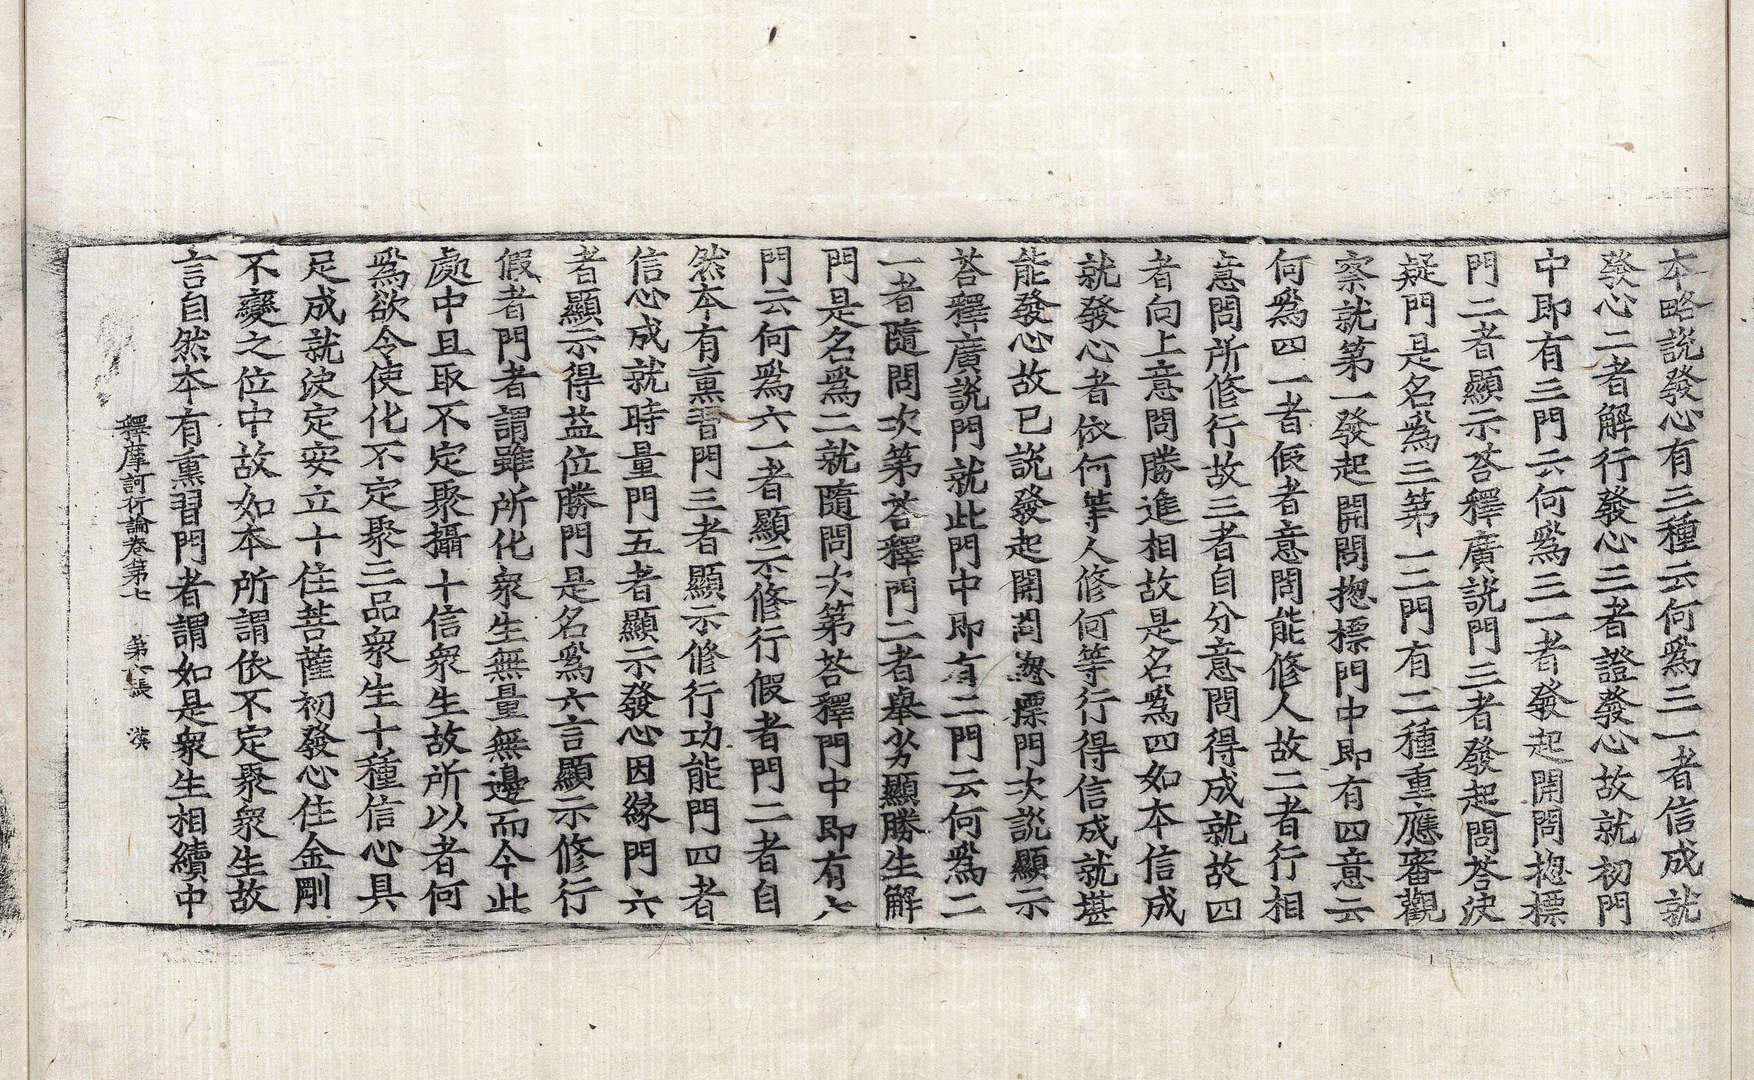 本略說發心有三種云何爲三一者信成就
發心二者解行發心三者證發心故就初門
中即有三門云何爲三一者發起開問揔標
門二者顯示荅釋廣說門三者發起問荅決
疑門是名爲三第一三門有二種重應審觀
察就第一發起開問揔標門中即有四意云
何爲四一者假者意問能修人故二者行相
意問所修行故三者自分意問得成就故四
者向上意問勝進相故是名爲四如本信成
就發心者依何等人修何等行得信成就堪
能發心故已說發起開問揔標門次說顯示
荅釋廣說門就此門中即有二門云何爲二
一者隨問次第荅釋門二者舉劣顯勝生解
門是名爲二就隨問次第荅釋門中即有六
門云何爲六一者顯示修行假者門二者自
然本有熏習門三者顯示修行功能門四者
信心成就時量門五者顯示發心因緣門六
者顯示得益位勝門是名爲六言顯示修行
假者門者謂雖所化衆生無量無邊而今此
處中且取不定聚攝十信衆生故所以者何
爲欲令使化不定聚三品衆生十種信心具
足成就決定安立十住菩薩初發心住金剛
不變之位中故如本所謂依不定聚衆生故
言自然本有熏習門者謂如是衆生相續中
釋摩訶衍論卷第七　第六張　漢